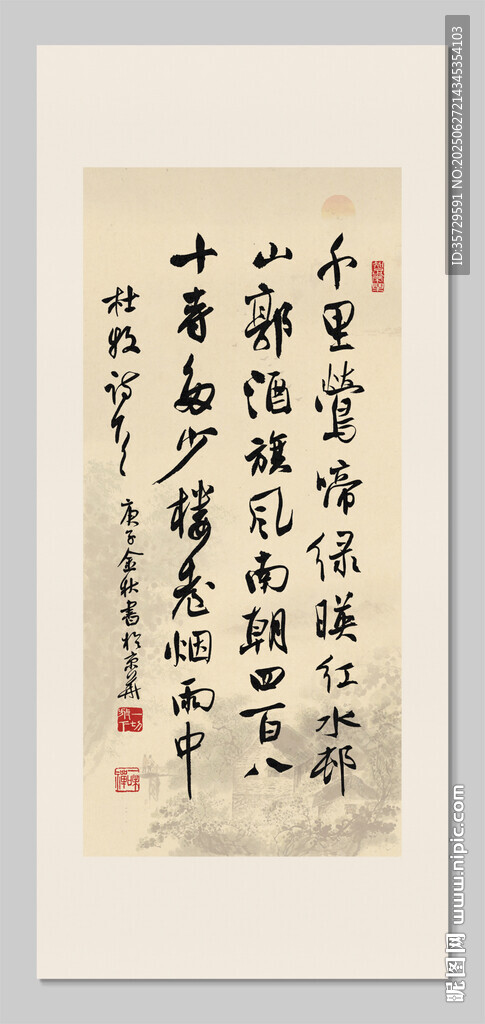 千里鶯啼绿暎红水邨
山郭酒旗风南朝四百八
十寺多少楼臺烟雨中
杜牧诗
庚子金秋書於京華
一切放下
ID:35729591 NO:20250627214345354103
昵图网 www.nipic.com